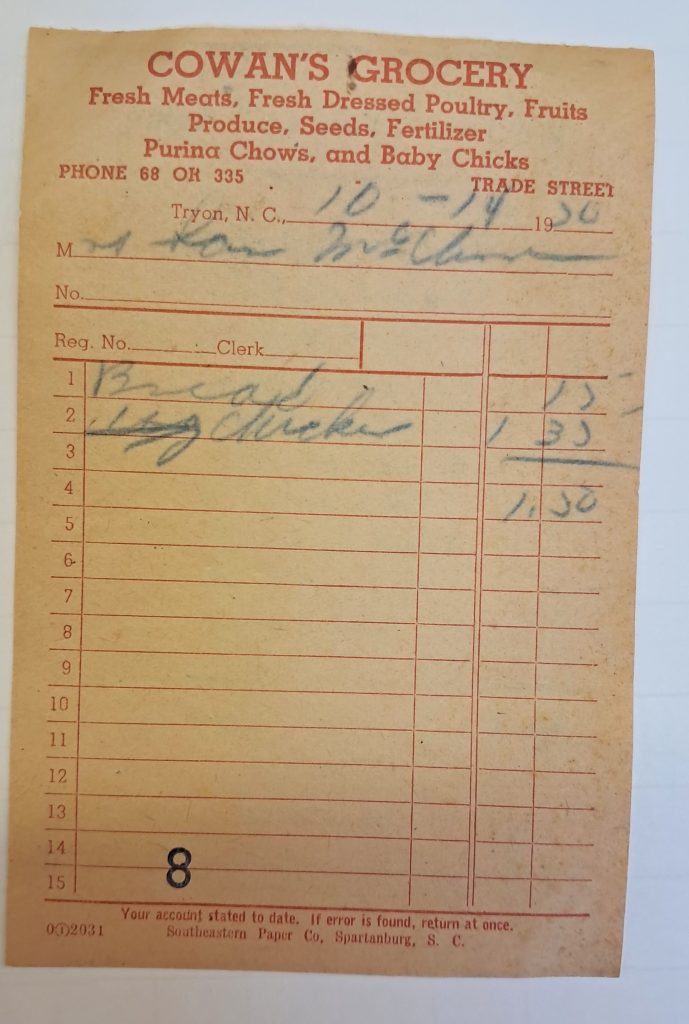 COWAN'S GROCERY
Fresh Meats, Fresh Dressed Poultry, Fruits
Produce, Seeds, Fertilizer
Purina Chows, and Baby Chicks
PHONE 68 OR 335 TRADE STREET
Tryon, N. C., 10 - 14 1950
Mrs
No.
Reg. No. Clerk
1 Bread 15
2 chicken 1 35
3
4 1.50
5
6
7
8
9
10
11
12
13
14
8
15
Your account stated to date. If error is found, return at once.
0①2031 Southeastern Paper Co, Spartanburg, S. C.